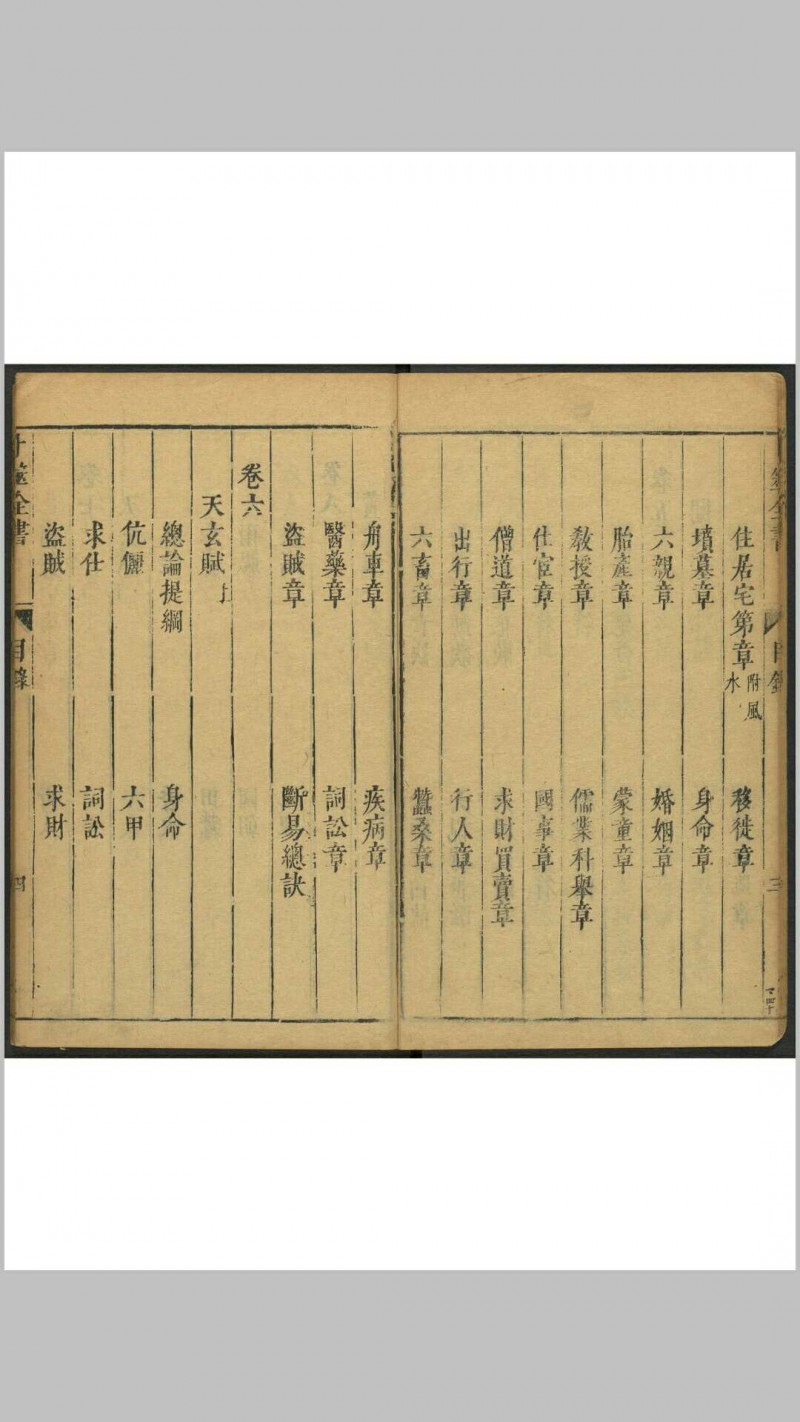 筮全書
目錄
三
住居宅第章 附風水 移徙章
墳墓章 身命章
六親章 婚姻章
胎產章 蒙童章
教授章 儒業科舉章
仕宦章 國事章
僧道章 求財買賣章
出行章 行人章
六畜章 蠶桑章
舟車章 疾病章
醫藥章 詞訟章
盜賊章 斷易總訣
卷六
天玄賦上
總論提綱 身命
伉儷 六甲
求仕 詞訟
盜賊 求財
卜筮全書
目錄
四